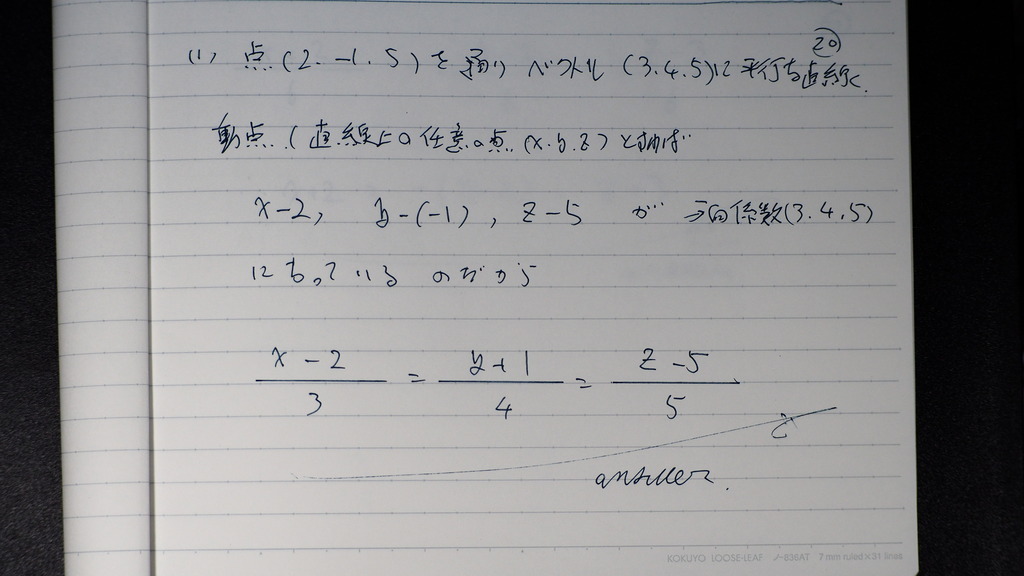 (1) 点(2.-1.5)を通り ベクトル(3.4.5)に平行な直線
20
動点.(直線上の任意の点.(x.y.z)と
x-2, y-(-1), z-5 が 方向係数(3.4.5)
になっている のだから
x-2/3 = y+1/4 = z-5/5
answer.
KOKUYO LOOSE-LEAF ノ-836AT 7 mm ruled×31 lines